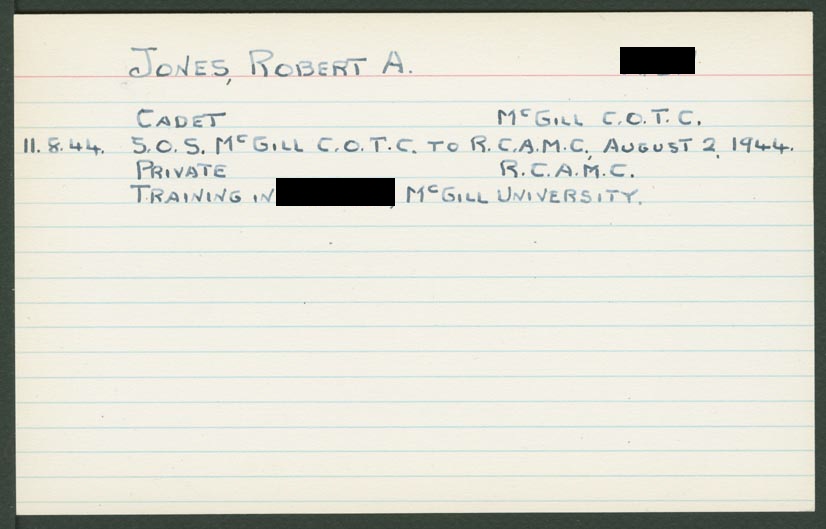 JONES, ROBERT A.
CADET McGILL C.O.T.C.
11.8.44. S.O.S. McGILL C.O.T.C. TO R.C.A.M.C., AUGUST 2, 1944.
PRIVATE R.C.A.M.C.
TRAINING IN , McGILL UNIVERSITY.